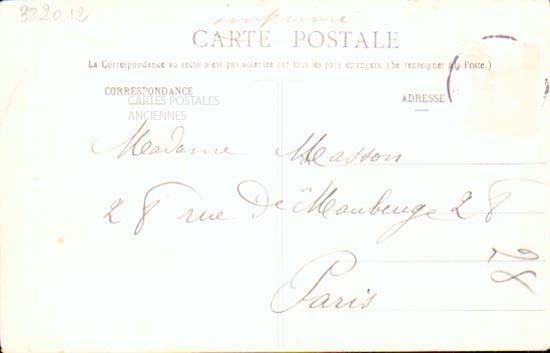 332012
imprimé
CARTE POSTALE
La Correspondance au recto n'est pas acceptée par tous les pays étrangers. (Se renseigner à la Poste.)
CORRESPONDANCE
ADRESSE
CARTES POSTALES
ANCIENNES
Madame Masson
28 rue De Maubeuge 28
Paris
28